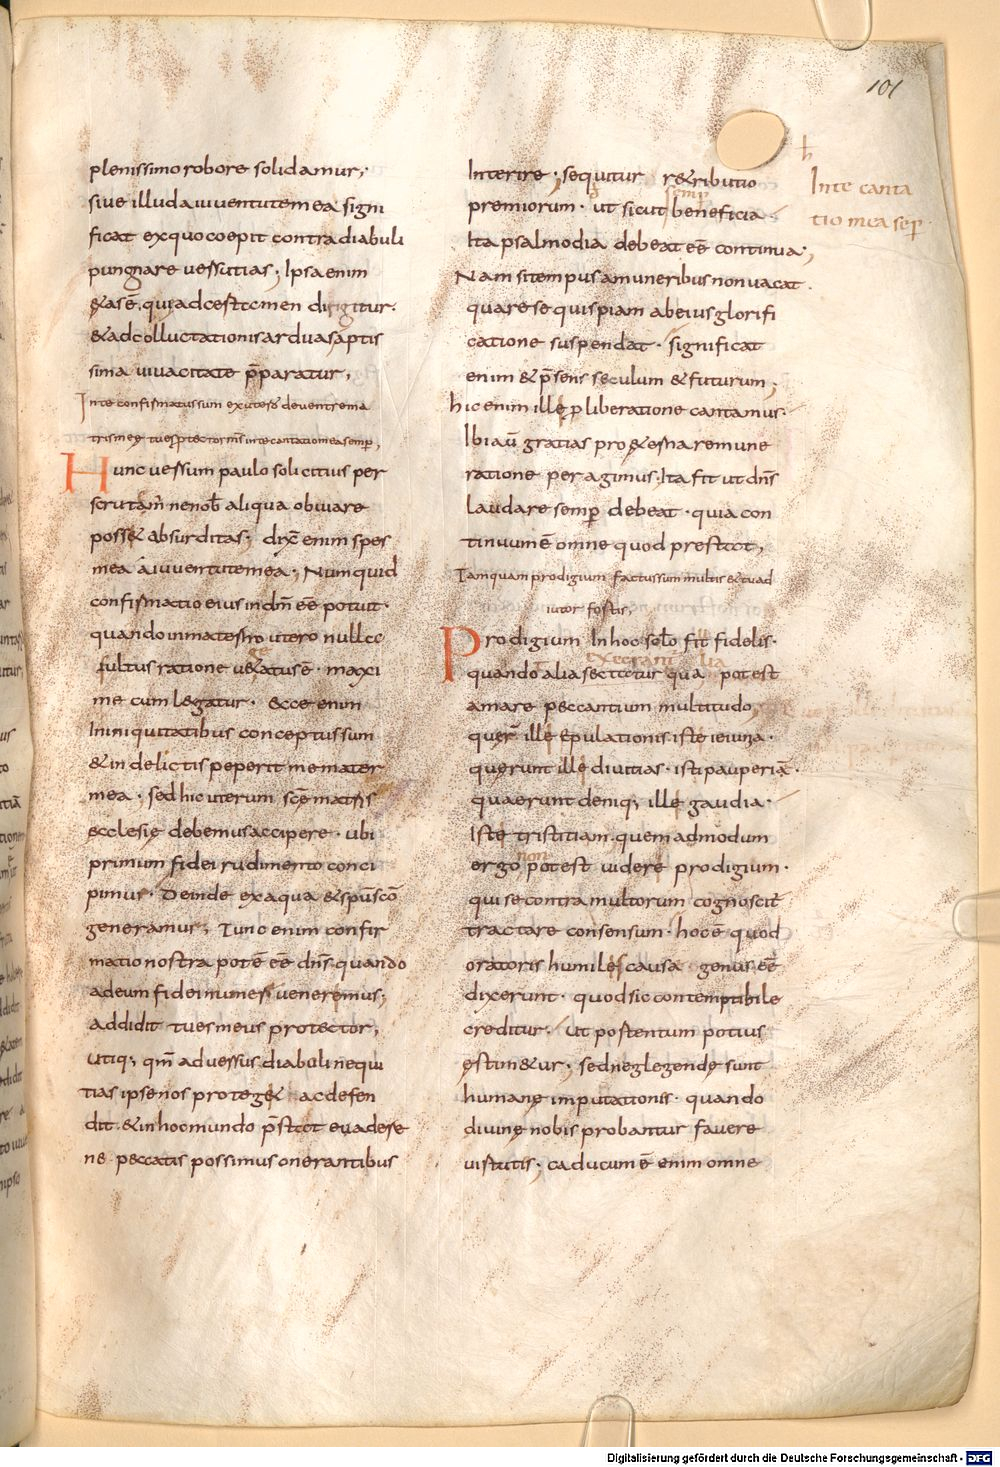 101
plenissimo robore solidamur;
siue illud a iuuentute mea signi
ficat ex quo coepit contra diabuli
pungnare uersutias; Ipsa enim
&as ē. qui ad cęstamen dirigitur.
& ad colluctationis arduas aptis
sima uiuacitate p̄paratur;
In te confirmatus sum ex utero de uentre ma
tris meę tu es ꝑtector m̄s in te cantatio mea semꝑ;
Hunc uersum paulo solicitius per
scrutam̄ ne nob̄ aliqua obuiare
poss& absurditas; dix̄ enim spes
mea a iuuentute mea; Numquid
confirmatio eius in dn̄m eē potuit.
quando in materno utero nulla
fultus ratione uersatus ē. maxi
me cum legatur. ecce enim
In iniquitatibus conceptus sum
& in delictis peperit me mater
mea. sed hic uterum sc̄e matris
ęcclesię debemus accipere. ubi
primum fidei rudimento conci
pimur. Deinde ex aqua & sp̄u sc̄o
generamur; Tunc enim confir
matio nostra pot ē eē dn̄s. quando
ad eum fidei munere uenerimus;
addidit tu es meus protector;
Utiq; qm̄ aduersus diaboli nequi
tias ipse nos proteg& ac defen
dit. & in hoc mundo p̄stat euadere
ne peccatis possimus onerantibus
Interire; sequitur r&ributio
premiorum. ut sicut beneficia
semꝑ
Ita psalmodia debeat eē continua;
Nam si tempus a muneribus non uacat.
quare se quispiam ab eius glorifi
catione suspendat. significat
enim & p̄sens seculum & futurum;
hic enim ille ꝑ liberatione cantamus.
Ibi aū gratias pro ęterna remune
ratione per agimus. Ita fit ut dn̄s
laudare semꝑ debeat. quia con
tinuum ē omne quod prestat;
Tamquam prodigium factus sum multis & tu ad
iutor fortis;
Prodigium In hoc sc̄lo fit fidelis.
quando alia sectatur qua potest
amare peccantium multitudo.
quęr̄ ille ępulationis. iste ieiunia.
quęrunt ille diuitias. isti pauperiā.
quaerunt deniq; ille gaudia.
Iste tristitiam. quem admodum
ergo potest uidere prodigium.
non
qui se contra multorum cognoscit
tractare consensum. hoc ē quod
oratoris humiles causa genus eē
dixerunt. quod sic contemptibile
creditur. Ut portentum potius
ęstim&ur. sed neglegendę sunt
humanę imputationis. quando
diuinę nobis probantur fauere
uirtutis; caducum ē enim omne
h
In te canta
tio mea seꝑ.
Digitalisierung gefördert durch die Deutsche Forschungsgemeinschaft - DFG